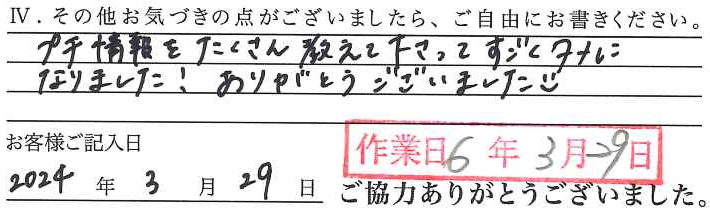 Ⅳ．その他お気づきの点がございましたら、ご自由にお書きください。
プチ情報をたくさん教えて下さってすごくタメに
なりました！ありがとうございました
お客様ご記入日
2024 年 3 月 29 日
作業日 6 年 3 月 29 日
ご協力ありがとうございました。